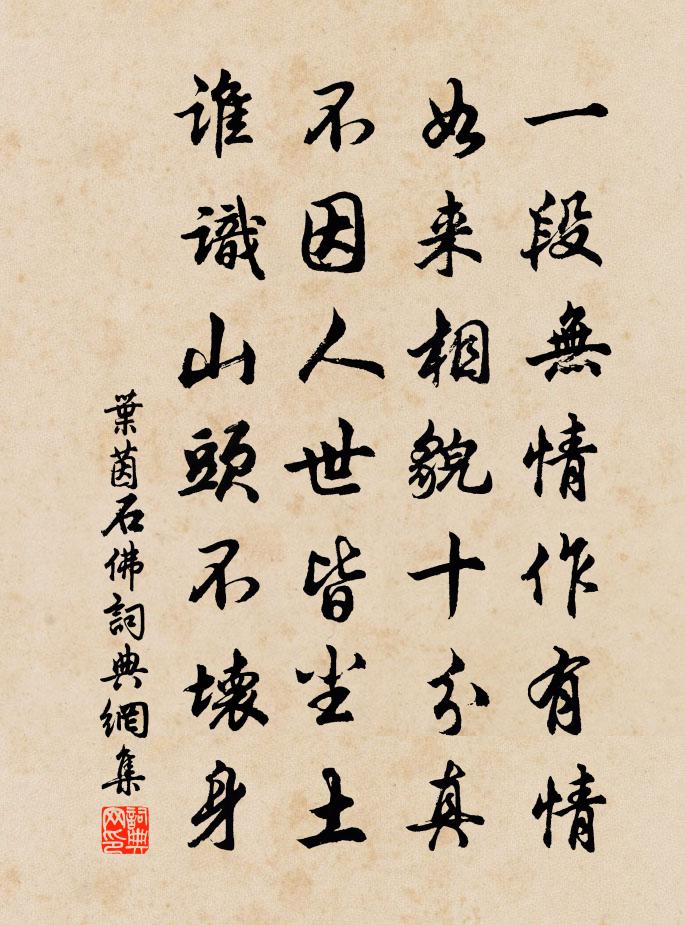 一段無情作有情
如来相貌十分真
不因人世皆尘土
誰識山頭不壊身
葉茵石佛詞典網集
詞典网印